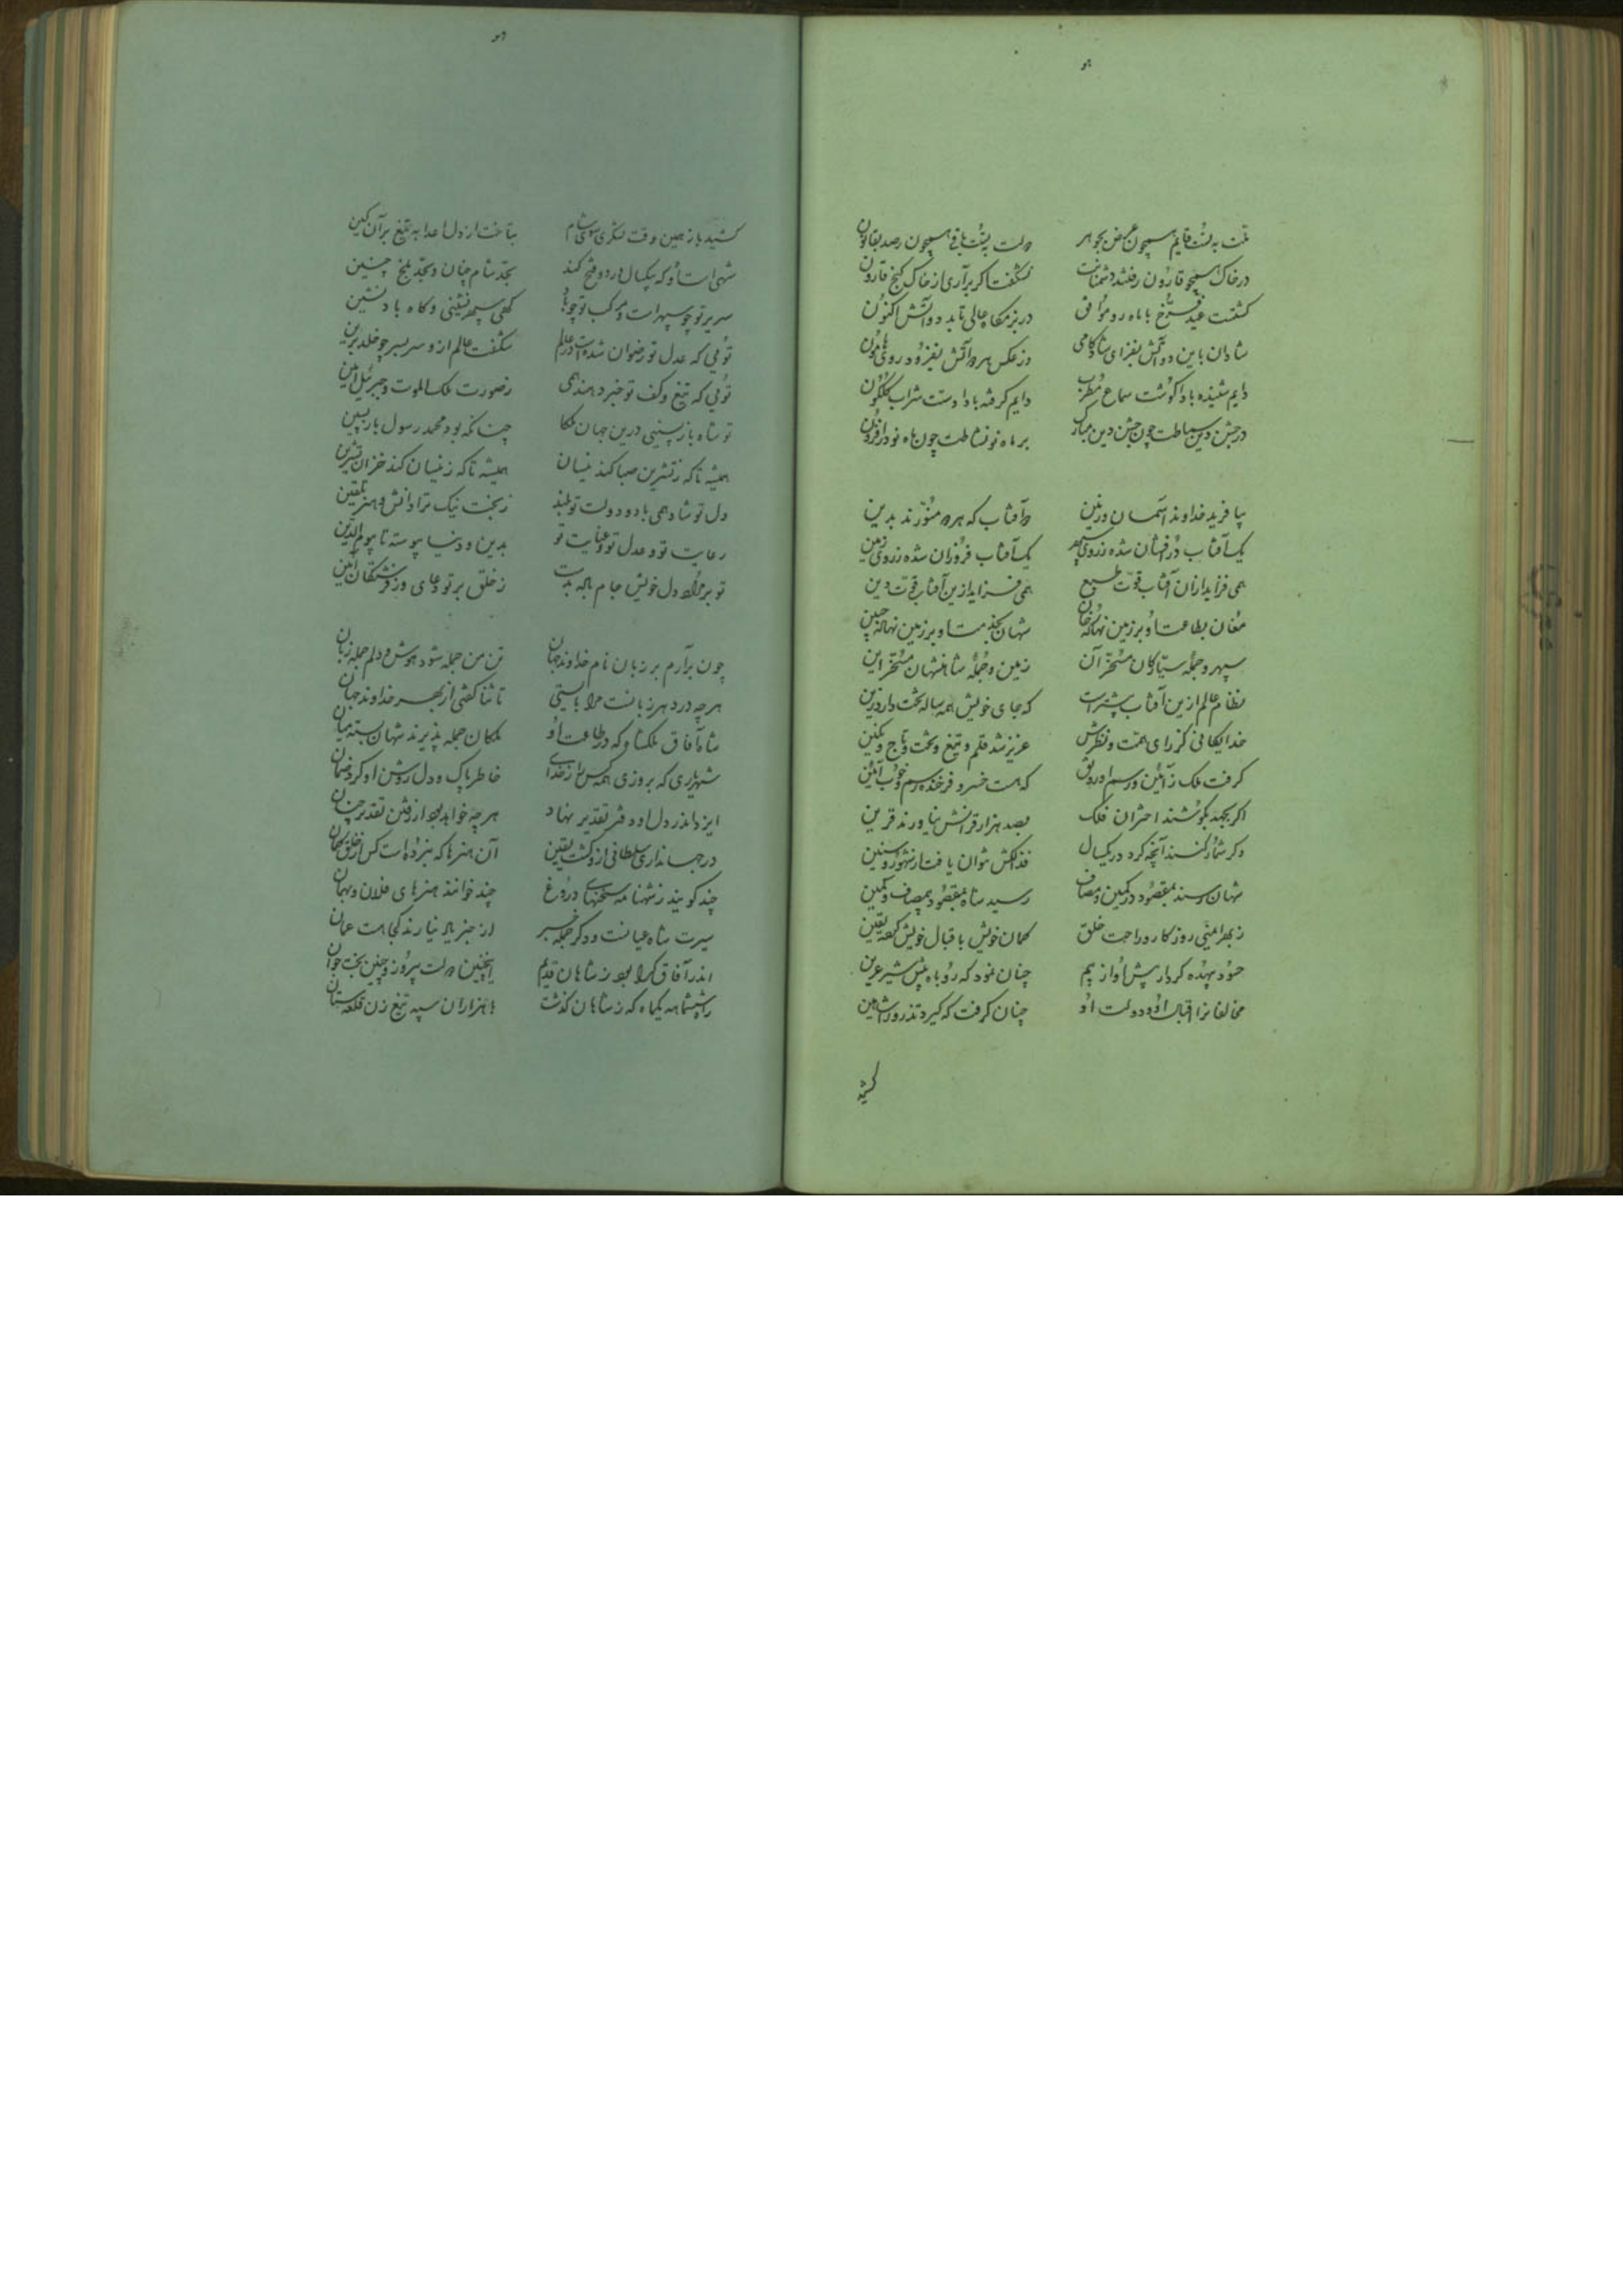 هو
ملت به تست قایم همچون عرض بجوهر دولت بتست باقی همچون رصد بقانون
در خاک همچو قارون رفتند دشمنانت نشگفت اگر برآری از خاک گنج قارون
گشتست عید فرخ با ماه رو موافق در بزمگاه عالی تابد دو آتش اکنون
شادان باین دو آتش بفزای شادکامی وز عکس هر دو آتش بفروز روی هامون
دایم شنیده بادا گوشت سماع مطرب دایم گرفته بادا دستت شراب گلگون
در جشن دین بساطت چون جشن دین مبارک بر ماه نو نشاطت چون ماه نو در افزون
بیافرید خداوند آسمان و زمین دو آفتاب که هر دو منورند بدین
یک آفتاب درفشان شده ز روی سپهر یک آفتاب فروزان شده ز روی زمین
همی فزاید از آن آفتاب قوت طبع همی فزاید ازین آفتاب قوت دین
مغان بطاعت او بر زمین نهاده رخان شهان بخدمت او بر زمین نهاده جبین
سپهر و جمله سیارگان مسخر آن زمین و جمله شاهنشهان مسخر این
نظام عالم ازین آفتاب بیشتر است که جای خویش همه ساله تخت دارد و زین
خدایگانی کز رای و همت و نظرش عزیز شد قلم و تیغ و تخت و تاج و نگین
گرفت ملک ز آئین و رسم او رونق که هست خسرو فرخنده رسم و خوب آئین
اگر بجهد بکوشند اختران فلک بصد هزار قرانش نیاورند قرین
وگر شمار کنند آنچه کرد در یکسال فذلکش نتوان یافت از شهور و سنین
شهان رسند بمقصود در کمین و مصاف رسید شاه بمقصود بی مصاف و کمین
ز بهر ایمنی روزگار و راحت خلق گمان خویش باقبال خویش کرد یقین
حسود بیهده کردار پیش او از بیم چنان نمود که روباه پیش شیر عرین
مخالفانرا اقبال او و دولت او چنان گرفت که گیرد تذرو را شاهین
کشید
هو
کشید باز همین وقت لشکری سوی شام بتاخت از دل اعدا به تیغ بران کین
شهی است او که بیکسال هر دو فتح کند بحد شام چنان و بحد بلخ چنین
سریر تو چو سپهر است و مرکب تو چو باد گهی سپهر نشینی و گاه باد نشین
توئی که عدل تو رضوان شده است در عالم شگفت عالم ازو سر بسر چو خلد برین
توئی که تیغ و کف تو خبر دهند همی ز صورت ملک الموت و جبرئیل امین
تو شاه بازپسینی درین جهان ملکا چنانکه بود محمد رسول بازپسین
همیشه تا که ز تشرین صبا کند نیسان همیشه تا که ز نیسان کند خزان تشرین
دل تو شاد همی باد و دولت تو بلند ز بخت نیک ترا دانش و هنر تلقین
رعایت تو و عدل تو و عنایت تو بدین و دنیا پیوسته تا بیوم الدین
تو بر مراد دل خویش جام باده بدست ز خلق بر تو دعای و ز فرشتگان آمین
چون برآرم بر زبان نام خداوند جهان تن من جمله شود هوش و دلم جمله زبان
هر چه در دهر زبانست مرا بایستی تا ثنا گفتی از بهر خداوند جهان
شاه آفاق ملکشاه که در طاعت او ملکان جمله پذیرند شهان بسته میان
شهریاری که بروزی همه کس را ز خدای خاطر پاک و دل روشن او کرد ضمان
ایزد اندر دل او دفتر تقدیر نهاد هر چه خواهد بود از رفتن تقدیر چنان
در جهانداری و سلطانی ازو گشت یقین آن هنرها که نبرده است کس از خلق گمان
چند گویند ز شهنامه سخنهای دروغ چند خوانند هنرهای فلان و بهمان
سیرت شاه عیانست و دگر جمله خبر از خبر یاد نیارند کجا هست عیان
اندر آفاق کرا بود ز شاهان قدیم اینچنین دولت پیروز و چنین بخت جوان
با هزاران سپه تیغ زن قلعه ستان